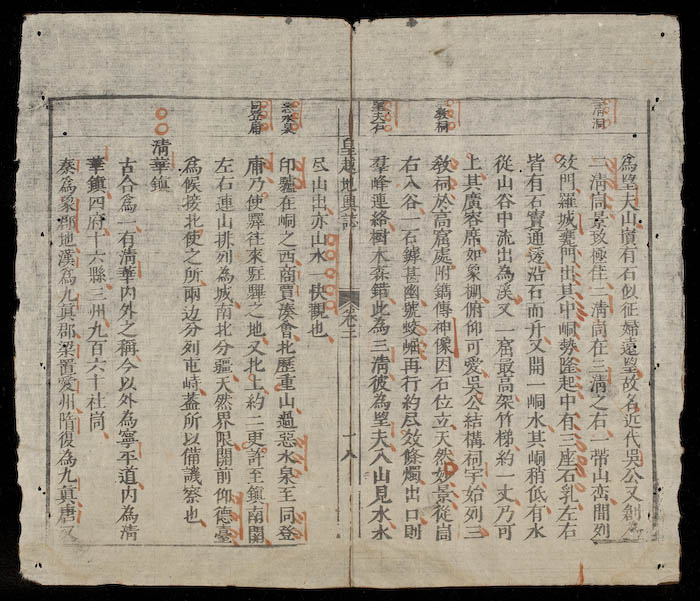 二清洞
三教祠
望夫石
為望夫山實有石似征婦遠望故名近代吳公又創
二清峝景致極佳二清峝在三清之右一帶山巒間列
效門羅城甕門出其中峒勢隆起中有三座石乳左右
皆有石竇通透沿石而升又開一峒水其峒稍低有水
從山谷中流出為溪又一窟最高架竹梯約一丈乃可
上其廣容席如象棚俯仰可愛吳公結構祠宇始列三
教祠於高窟處附鐫傳神像因石位立天然妙景從峝
右入谷一石罅甚幽號蛟崛再行約尽效條燭出口則
羣峰連絡樹木森錯此為三清彼為望夫入山見水水
尽山出亦山水一快觀也
皇越地輿誌
卷二
十八
惡水泉
同登庯
印驢在峒之西商賈湊會北歷重山過惡水泉至同登
庯乃使驛往來駐驆之地又北上約二更許至鎮南關
左右連山排列為城南北分疆天然界限關前仰德臺
為候接北使之所兩边分列屯峙葢所以備譏察也
清華鎮
古合為一有清華內外之稱今以外為寧平道內為清
華鎮四府十六縣三州九百六十社峝
秦為象郡地漢為九真郡梁置愛州隋復為九真唐又